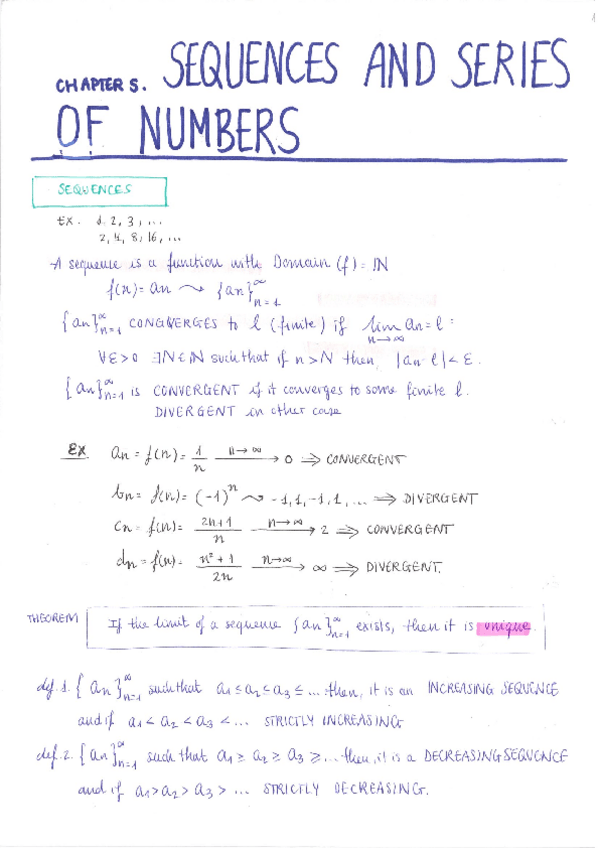 CHAPTER 5. SEQUENCES AND SERIES
OF NUMBERS
SEQUENCES
EX. 1, 2, 3, ...
2, 4, 8, 16, ...
A sequence is a function with Domain (f) = ℕ
f(n) = an ⤳ {an}∞n=1
{an}∞n=1 CONGVERGES to l (finite) if lim n→∞ an = l :
∀ε>0 ∃N∈ℕ such that if n>N then, |an-l|<ε.
{an}∞n=1 is CONVERGENT if it converges to some finite l.
DIVERGENT in other case
EX an = f(n) = 1/n n→∞ → 0 ⇒ CONVERGENT
bn = f(n) = (-1)^n ⤳ -1, 1, -1, 1, ... ⇒ DIVERGENT
cn = f(n) = 2n+1/n n→∞ → 2 ⇒ CONVERGENT
dn = f(n) = n²+1/2n n→∞ → ∞ ⇒ DIVERGENT.
THEOREM If the limit of a sequence {an}∞n=1 exists, then it is unique.
def. 1. {an}∞n=1 such that a1 ≤ a2 ≤ a3 ≤ ... then, it is an INCREASING SEQUENCE
and if a1 < a2 < a3 < ... STRICTLY INCREASING
def. 2. {an}∞n=1 such that a1 ≥ a2 ≥ a3 ≥ ... then, it is a DECREASING SEQUENCE
and if a1 > a2 > a3 > ... STRICTLY DECREASING.